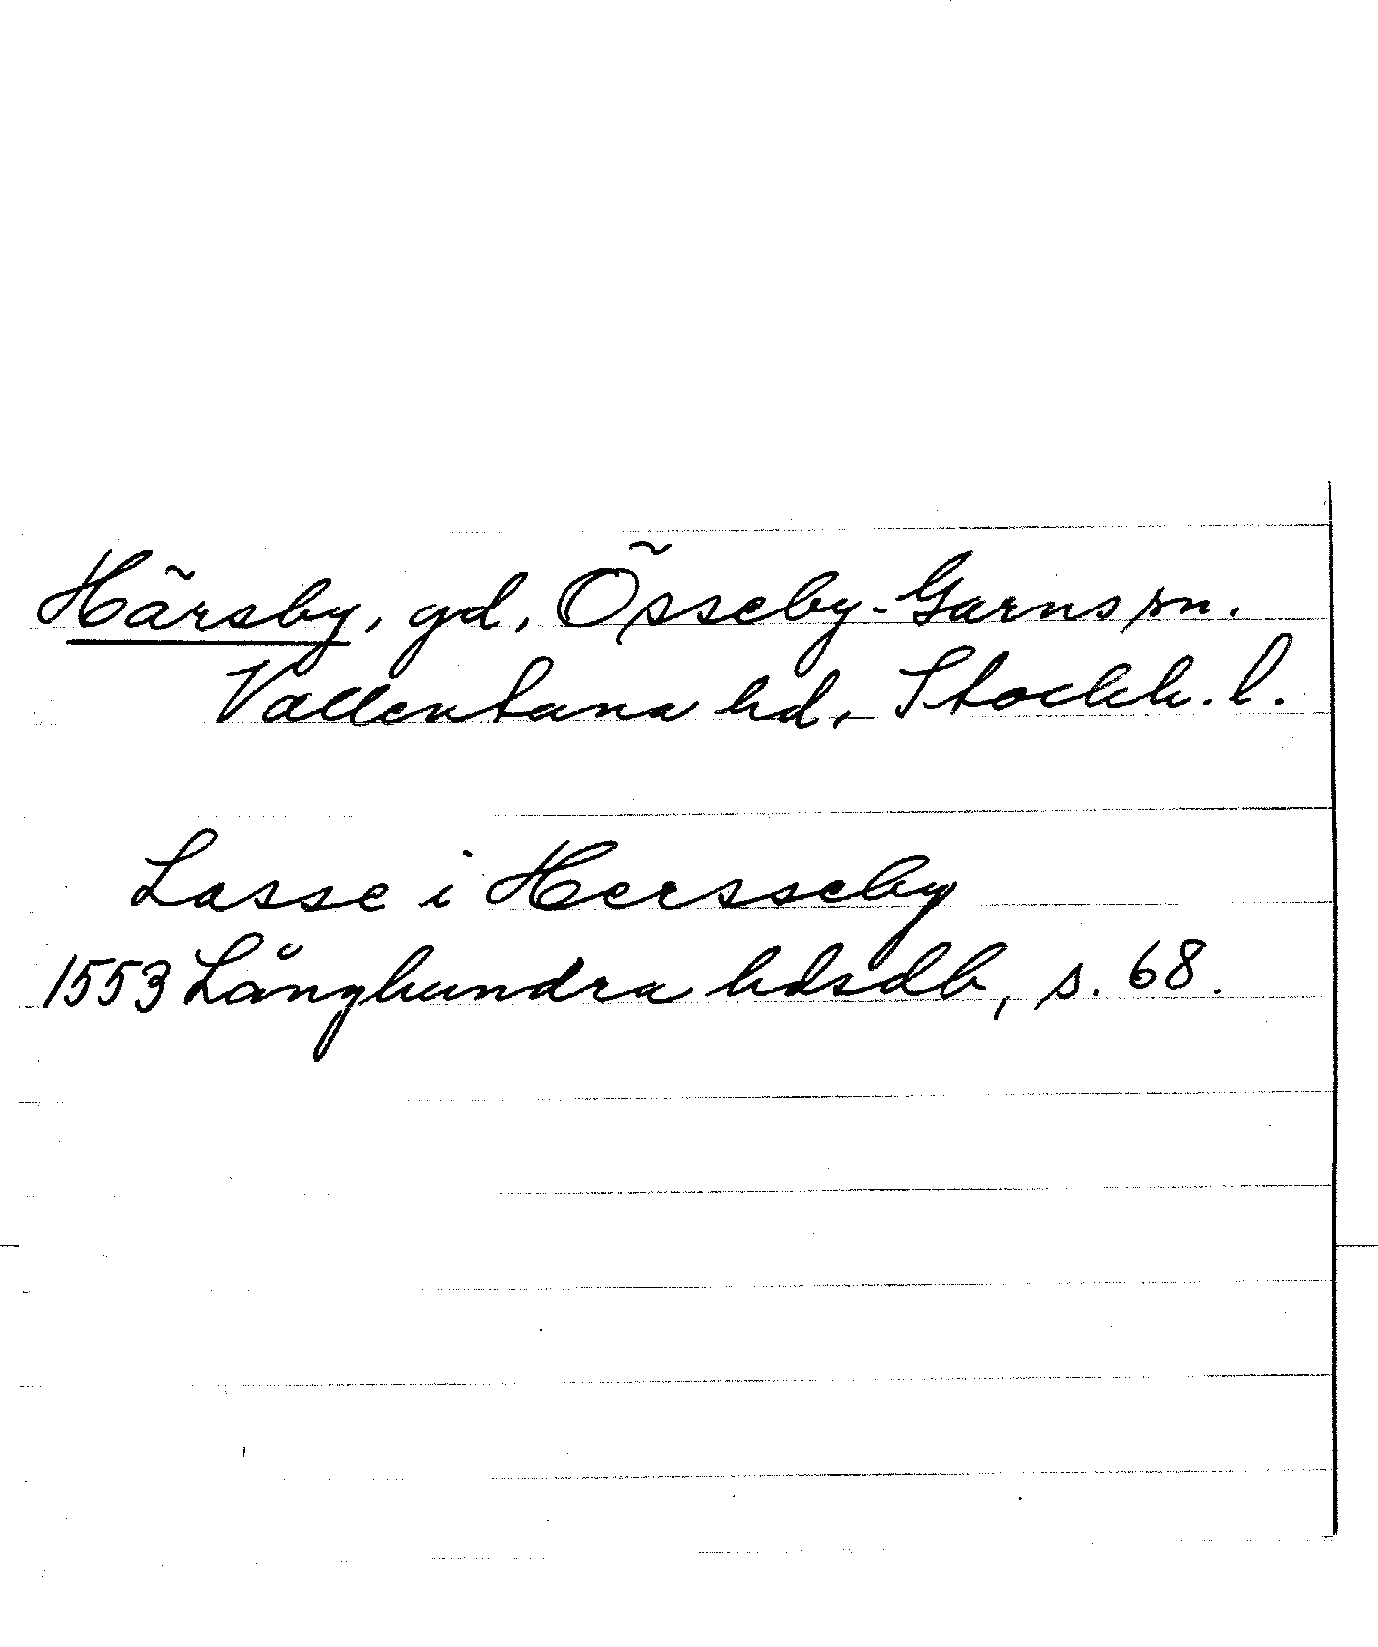 Härsby, gd, Össeby-Garns sn.
Vallentuna hd, Stockh. l.
Lasse i Hersseby
1553 Långhundra hdsdb, s. 68.